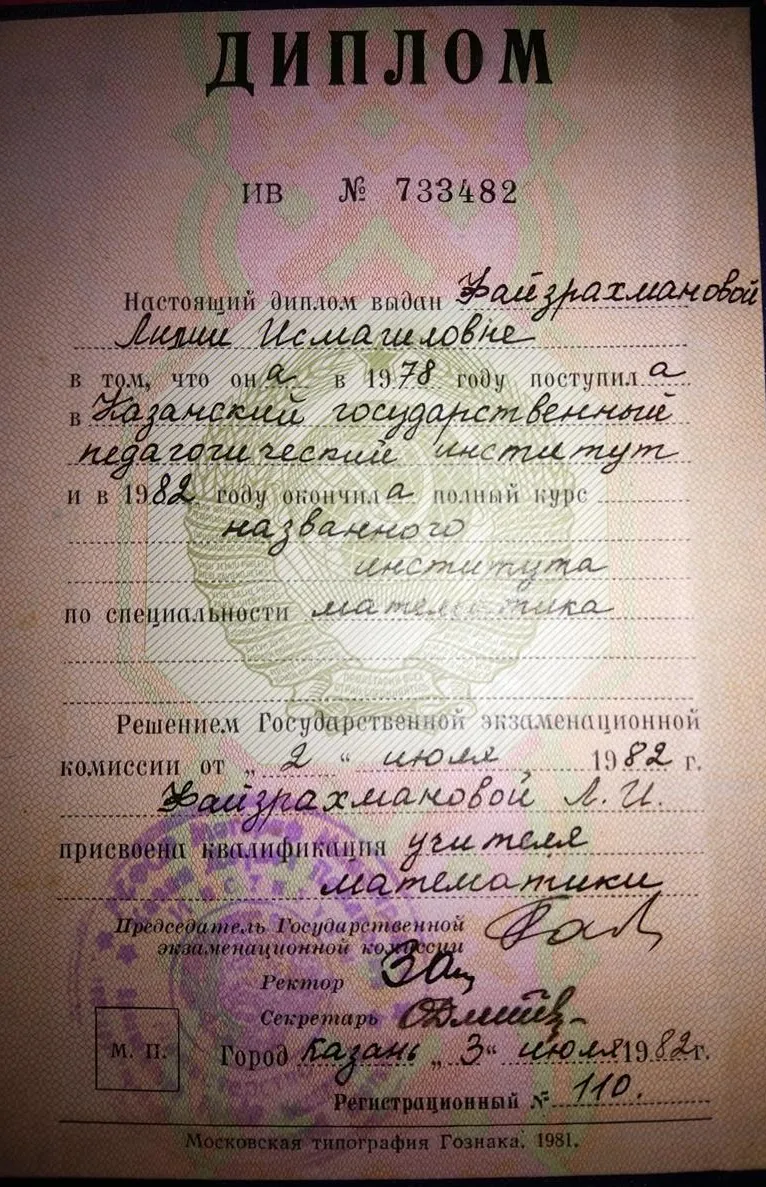 ДИПЛОМ
ИВ № 733482
Настоящий диплом выдан Файзрахмановой
Лилии Исмагиловне
в том, что она в 1978 году поступила
в Казанский государственный
педагогический институт
и в 1982 году окончила полный курс
названного
института
по специальности математика
Решением Государственной экзаменационной
комиссии от „ 2 “ июля 1982 г.
Файзрахмановой Л. И.
присвоена квалификация учителя
математики
Председатель Государственной
экзаменационной комиссии
Ректор
Секретарь
М. П.
Город Казань „ 3 “ июля 1982 г.
Регистрационный № 110.
Московская типография Гознака. 1981.